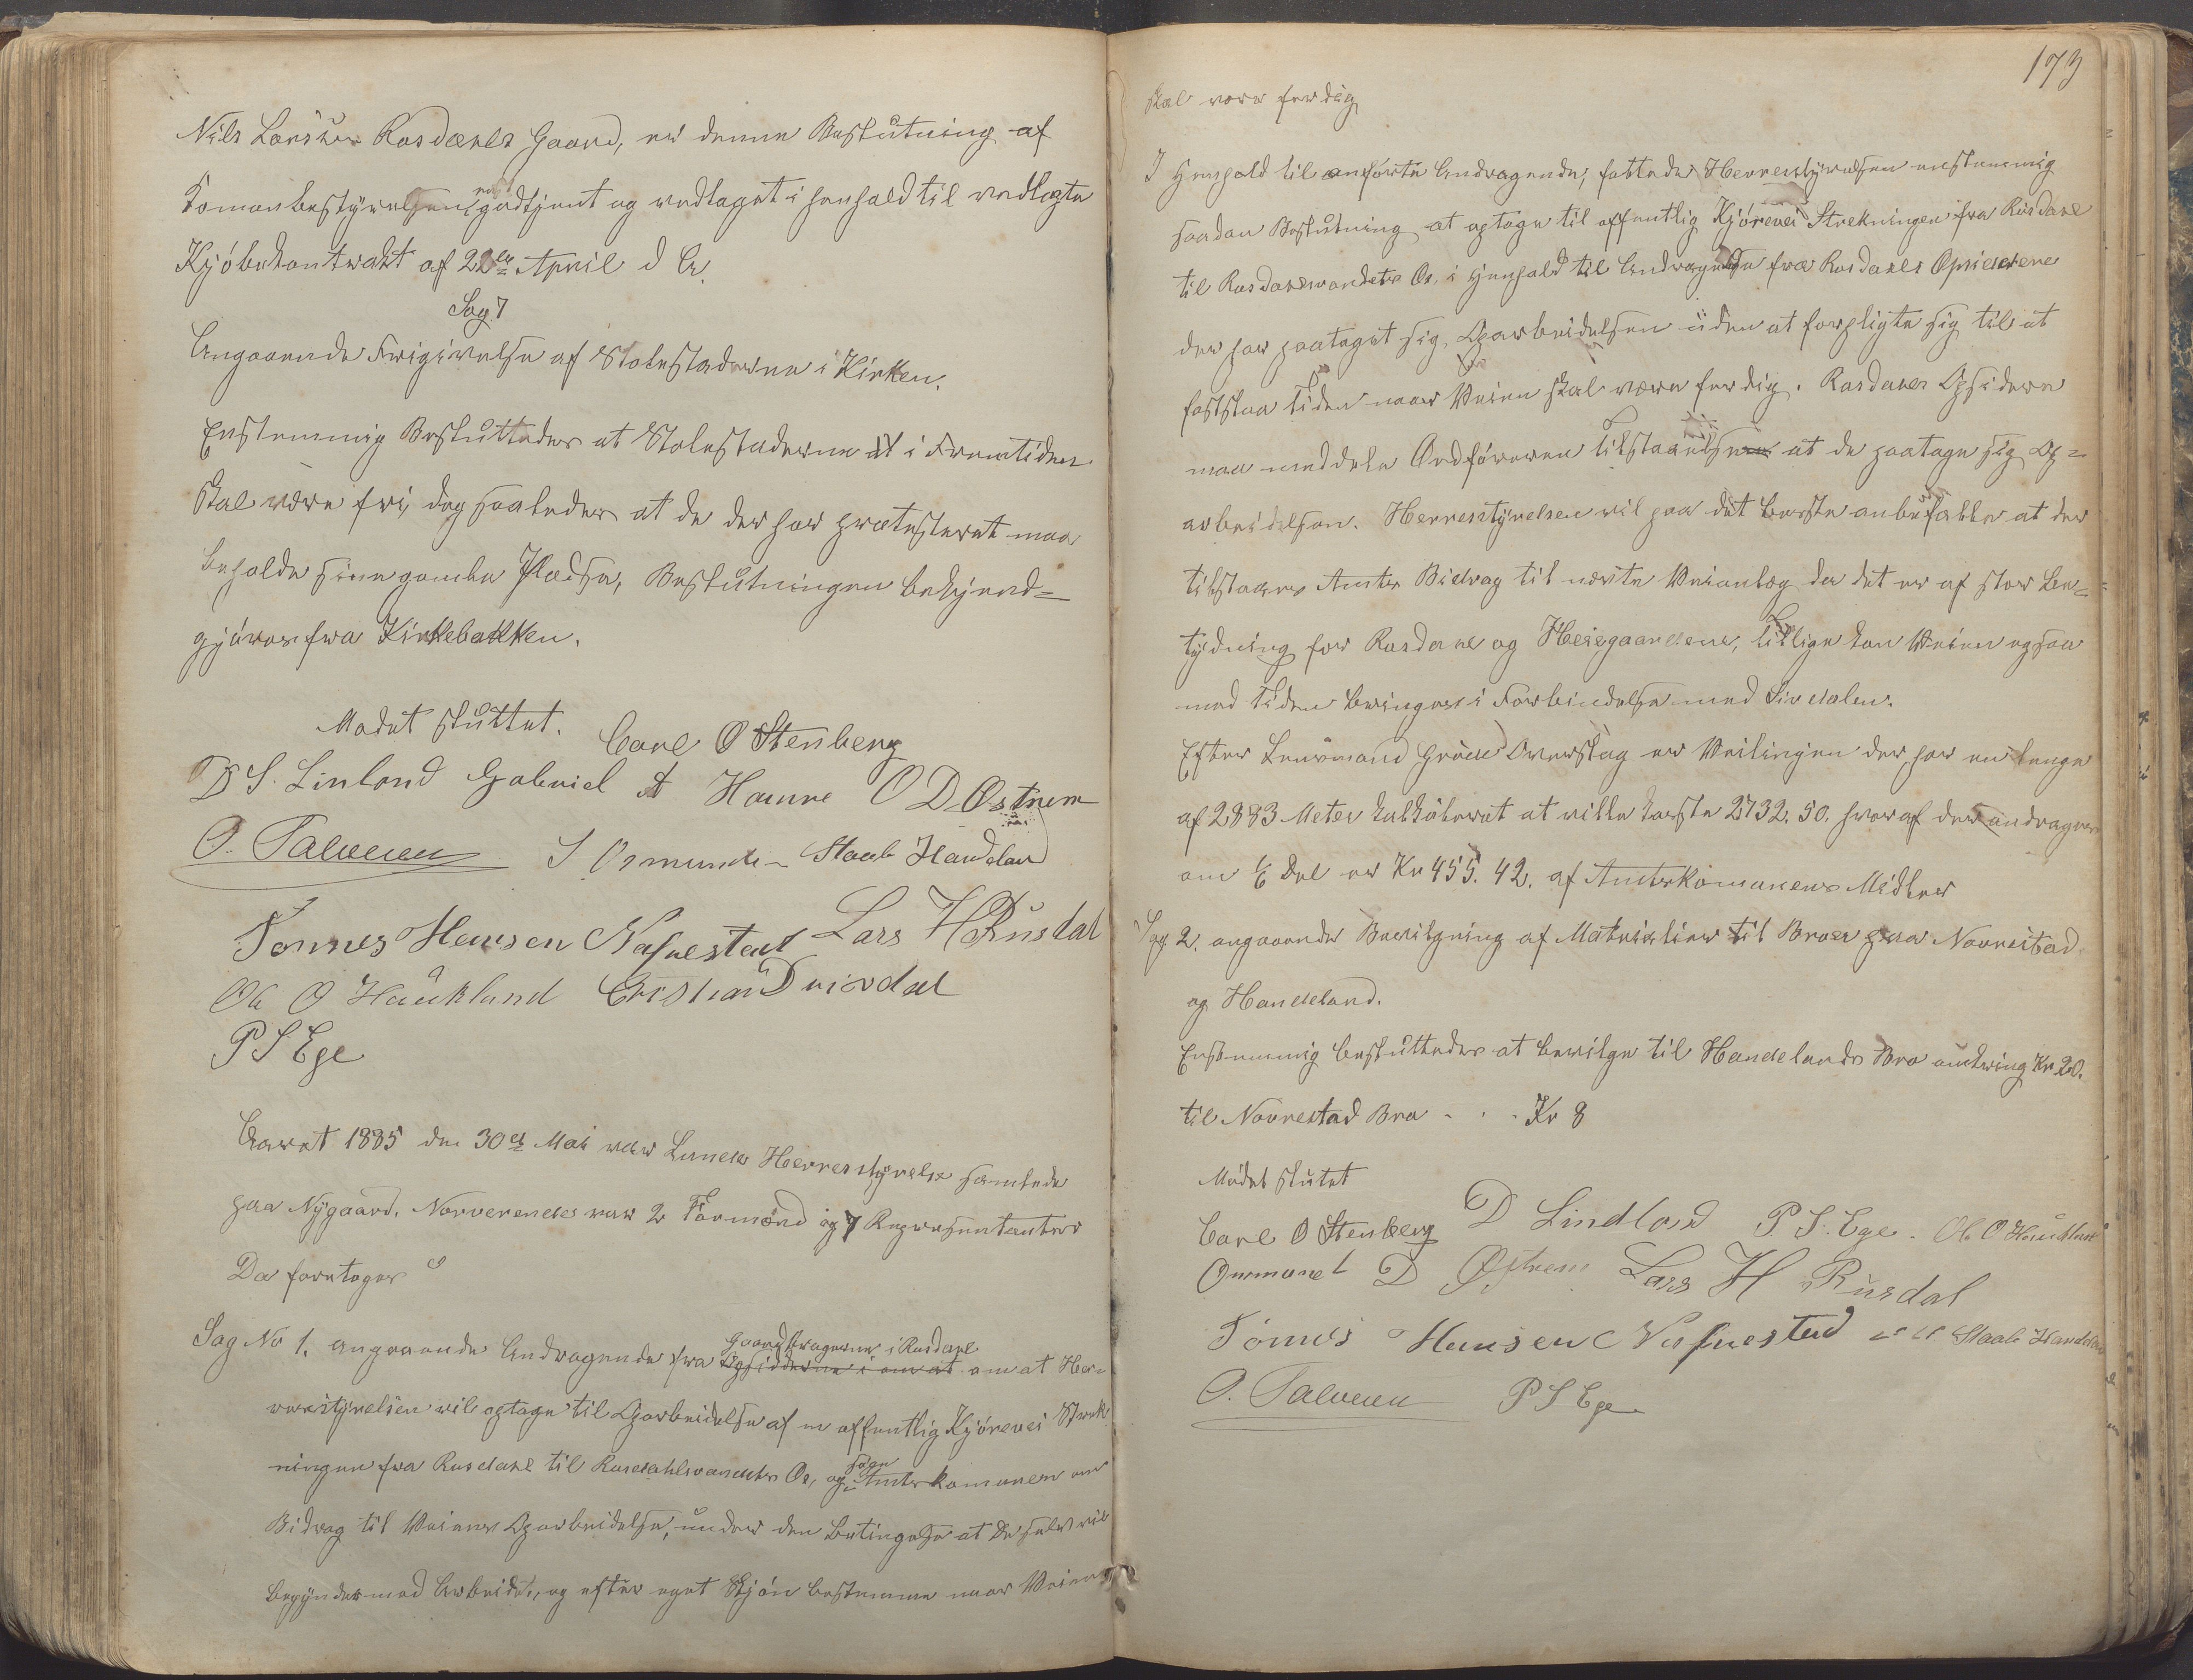 Nils Larsen Rosdahls Gaard, er denne Beslutning af
Komunbestyrelsen godkjent og vedtaget i henhold til vedlagte
Kjöbekontrakt af 22de April d A.
Sag 7
Angaaende Frigivelse af Stolestaderne i Kirken.
Enstemmig Besluttedes at Stolestaderne i Fremtiden
skal være fri, dog saaledes at de der har protesteret maa
beholde sine gamle Pladse, Beslutningen bekjend=
gjöres fra Kirkebakken.
Mødet sluttet. Carl O Stenberg
D S. Linland Gabriel A Hamre O D Østrem
O. Salvesen S Osmunds Staale Handeland
Tönnes Hansen Nafnestad Lars H Rusdal
Ole O Haukland Cristian Drivdal
P S Ege
Aaret 1885 den 30te Mai var Lunds Herresstyrelse samlede
paa Nygaard. Nærværendes var 2 Formænd og 7 Representanter
Da foretoges
Gaardbrugerne i Rusdahl
Sag No 1. angaaende Andragende fra Opsidderne i om at om at Her=
resstyrelsen vil optage til Oparbeidelse af en offentlig Kjörevei Strek
ningen fra Rusdahl til Rusdahlsvandets Os, og Amtskomunen om
Bidrag til Veiens Oparbeidelse, under den Betingelse at De selv vil
begynde med Arbeidet, og efter eget Skjön bestemme naar Veien
173
skal være ferdig
I Henhold til anförte Andragende, fattedes Herresstyrelsen enstemmig
saadan Beslutning at optage til offentlig Kjörevei Strekningen fra Rusdahl
til Rusdahlsvandets Os, i Henhold til Andragende fra Rusdahls Opsiddere
der har paataget sig Oparbeidelsen uden at forpligte sig til at
fastslaa Tiden naar Veien skal være ferdig. Rusdahls Opsiddere
maa meddele Ordföreren Tilstaaelse at de paatage sig Op=
arbeidelsen. Herresstyrelsen vil paa det beste anbefalle at der
tilstaaes Amts Bidrag til nævnte Veianlæg da det er af stor Be=
tydning for Rusdahl og Heiegaardene, tillige kan Veien ogsaa
med Tiden bringes i Forbindelse med Sirdalen.
Efter Lensmand Gröns Overslag er Veilinjen der har en Lengde
af 2883 Meter kalkuleret at ville koste 2732. 50. hvoraf der andrages
om 1/6 Del er Kr 455. 42. af Amtskomunens Midler
Sag 2. angaaende Bevilgning af Matrialier til Broer paa Navrestad
og Handeland.
Enstemmig besluttedes at bevilge til Handelands Bro omkring Kr 20.
til Navrestad Bro . . . Kr 8
Mödet slutet
Carl O Stenberg D Lindland P S. Ege. Ole O Haukland
Osmund D Østrem Lars H Rusdal
Tönnes Hansen Nafnestad Staale Handeland
O. Salvesen P S Ege